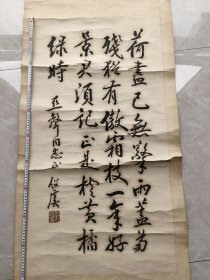 荷盡已無擎雨蓋菊
殘猶有傲霜枝一年好
景君須記正是橙黃橘
綠時 聲同志正